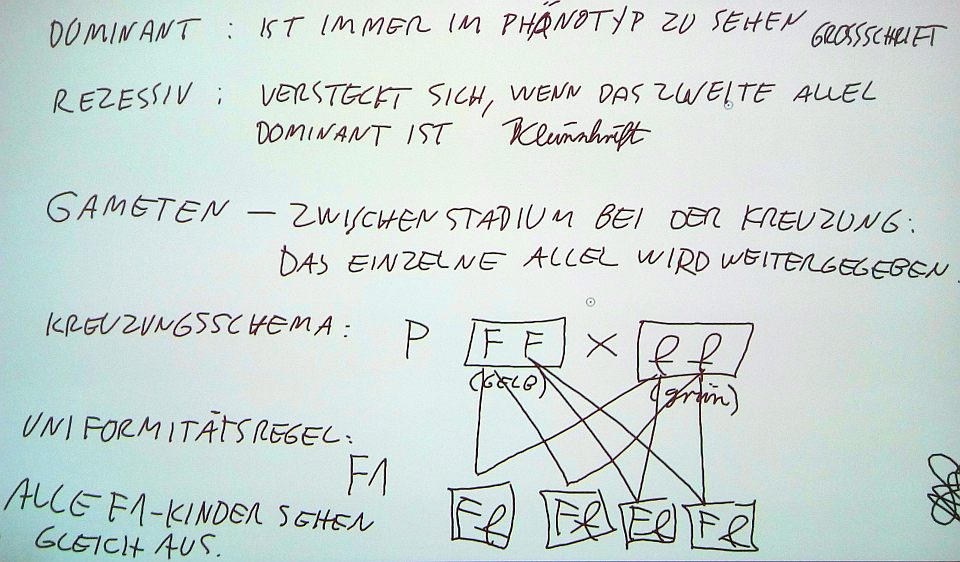 DOMINANT : IST IMMER IM PHÄNOTYP ZU SEHEN GROSSSCHRIFT
REZESSIV : VERSTECKT SICH, WENN DAS ZWEITE ALLEL
DOMINANT IST Kleinschrift
GAMETEN — ZWISCHENSTADIUM BEI DER KREUZUNG:
DAS EINZELNE ALLEL WIRD WEITERGEGEBEN.
KREUZUNGSSCHEMA: P F F × f f
(GELB) (grün)
UNIFORMITÄTSREGEL:
F1
ALLE F1-KINDER SEHEN
GLEICH AUS.
Ff Ff Ff Ff